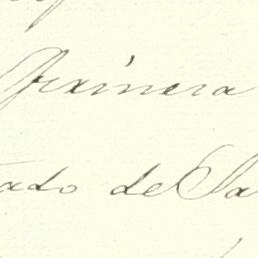 Primera
tado de Sa